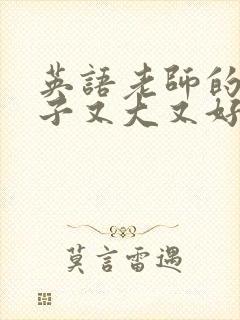 英語老師的
子又大又好
莫言雷遇